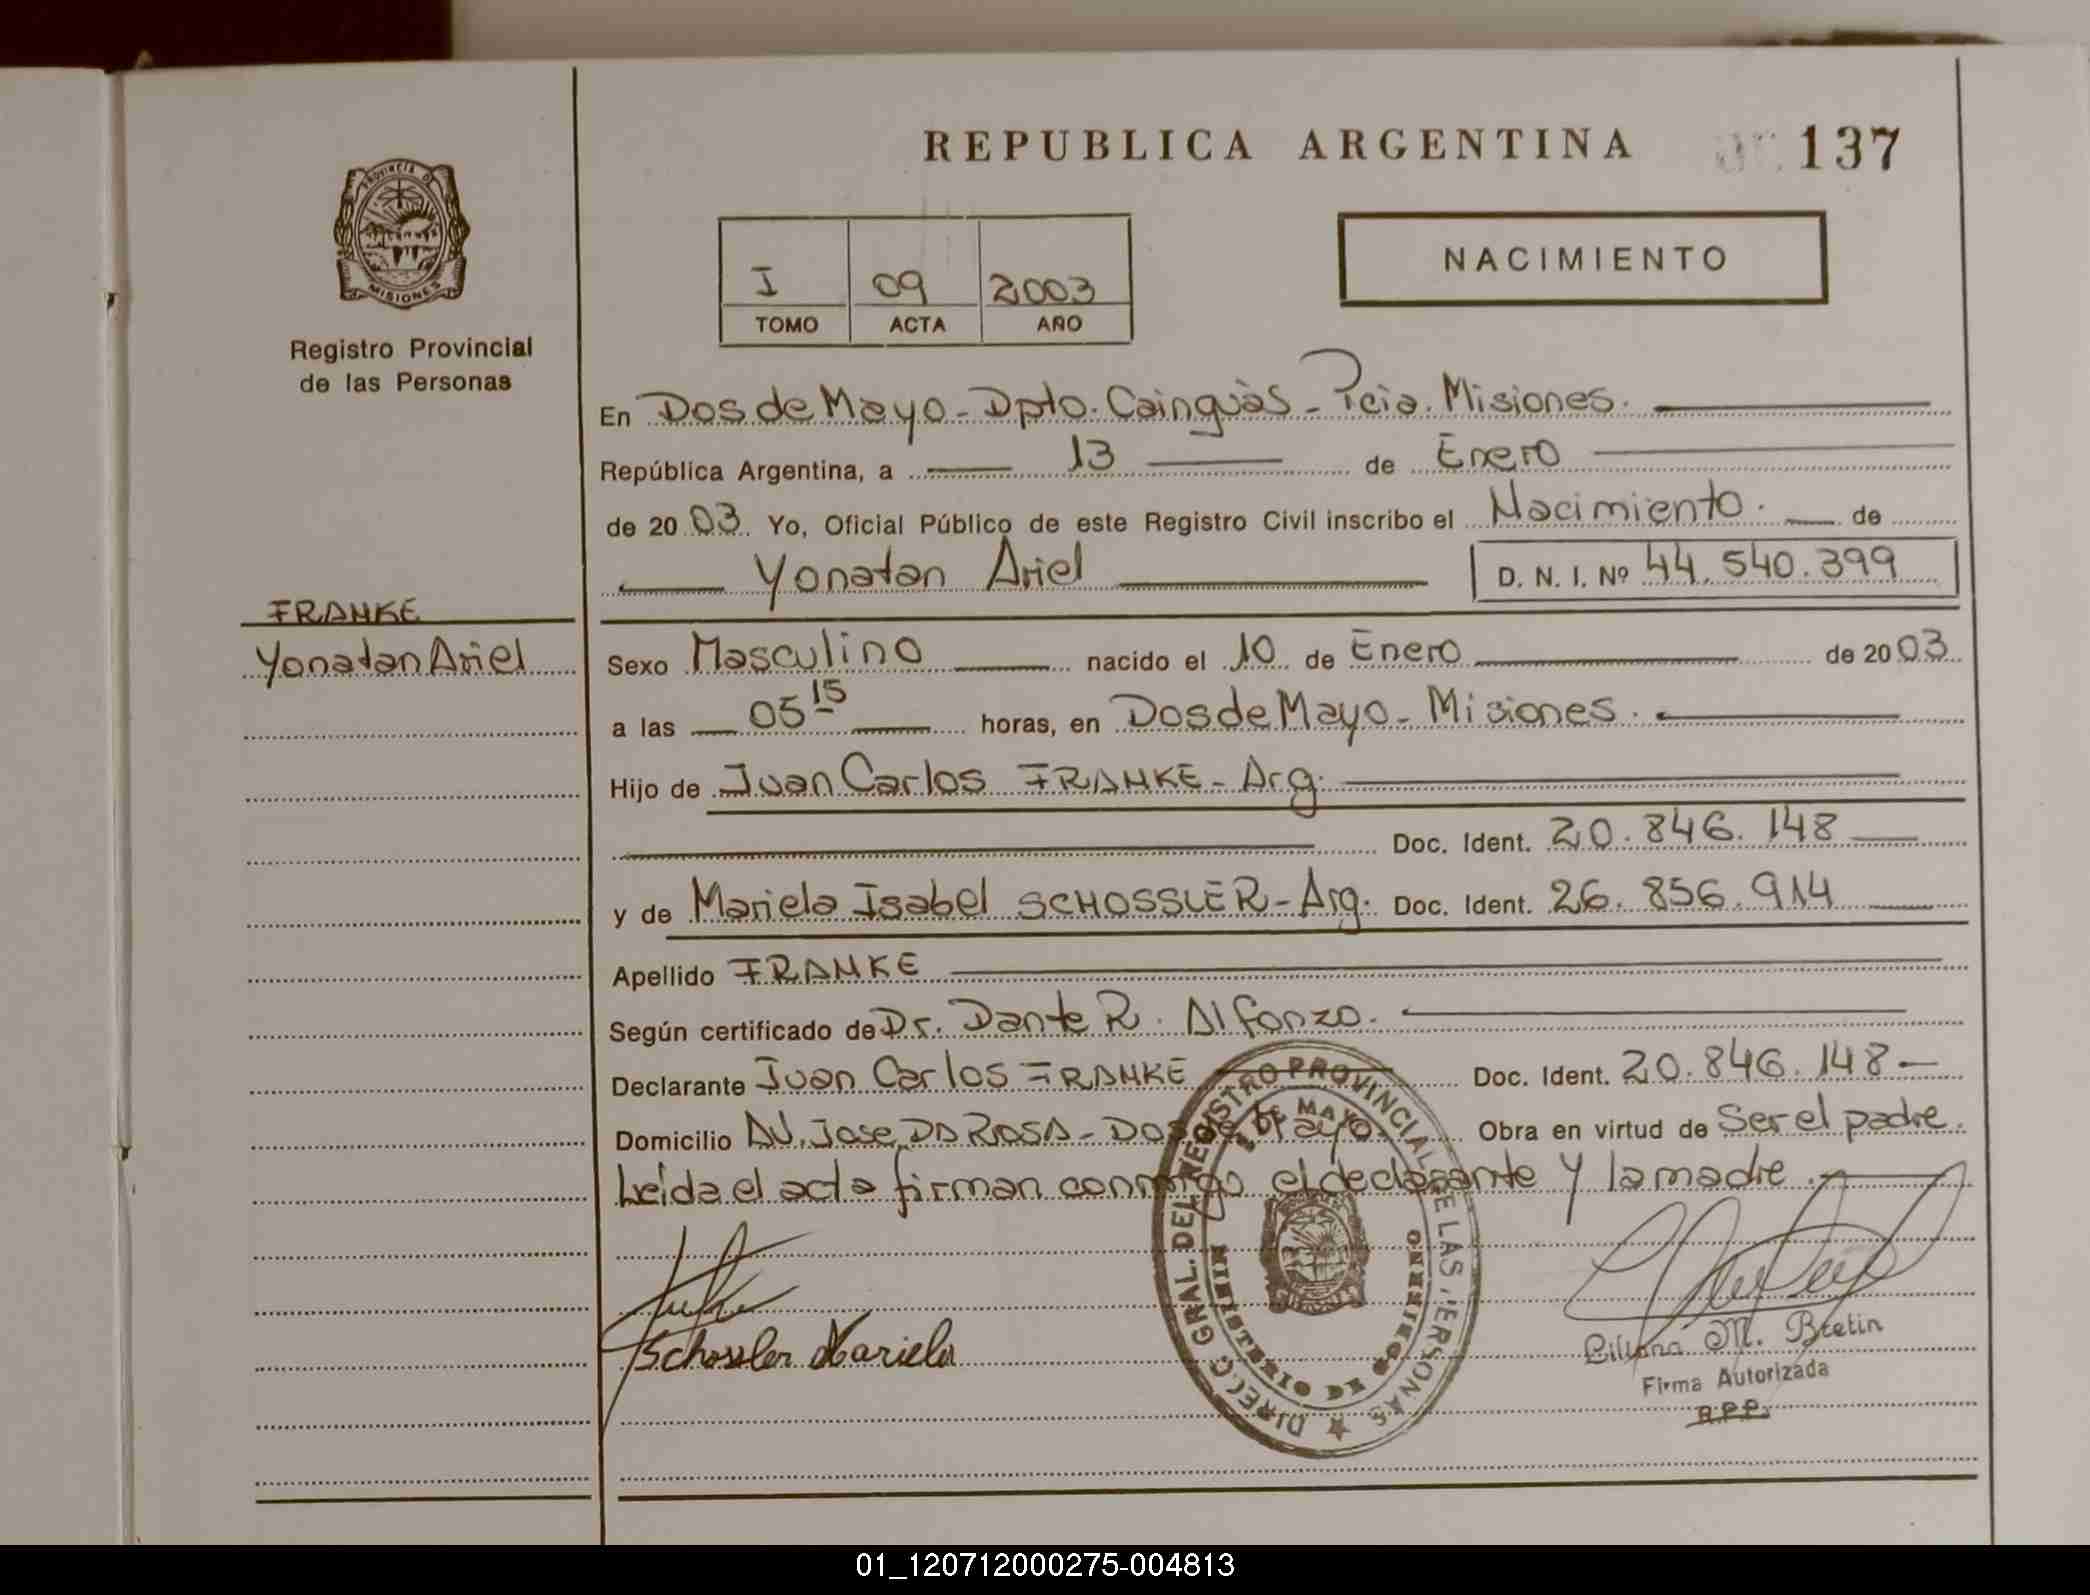 REPUBLICA ARGENTINA 137
PROVINCIA D
MISIONES
Registro Provincial
de las Personas
I 09 2003
TOMO ACTA AÑO
NACIMIENTO
En Dos de Mayo - Dpto. Cainguàs - Pcia. Misiones.
República Argentina, a 13 de Enero
de 2003. Yo, Oficial Público de este Registro Civil inscribo el Nacimiento. de
Yonatan Ariel D. N. I. Nº 44.540.399
FRANKE
Yonatan Ariel
Sexo Masculino nacido el 10 de Enero de 2003
a las 05 15 horas, en Dos de Mayo - Misiones.
Hijo de Juan Carlos FRANKE - Arg.
Doc. Ident. 20.846.148
y de Mariela Isabel SCHOSSLER - Arg. Doc. Ident. 26.856.914
Apellido FRANKE
Según certificado de Dr. Dante R. Alfonzo.
Declarante Juan Carlos FRANKE Doc. Ident. 20.846.148 -
Domicilio AV. Jose DA ROSA - Dos de Mayo. Obra en virtud de Ser el padre.
Leida el acta firman conmigo el declarante y la madre.
DIRECC GRAL. DEL REGISTRO PROVINCIAL DE LAS PERSONAS
MINISTERIO DE GOBIERNO
Schossler Mariela
Liliana M. Bretin
Firma Autorizada
R.P.P.
01_120712000275-004813